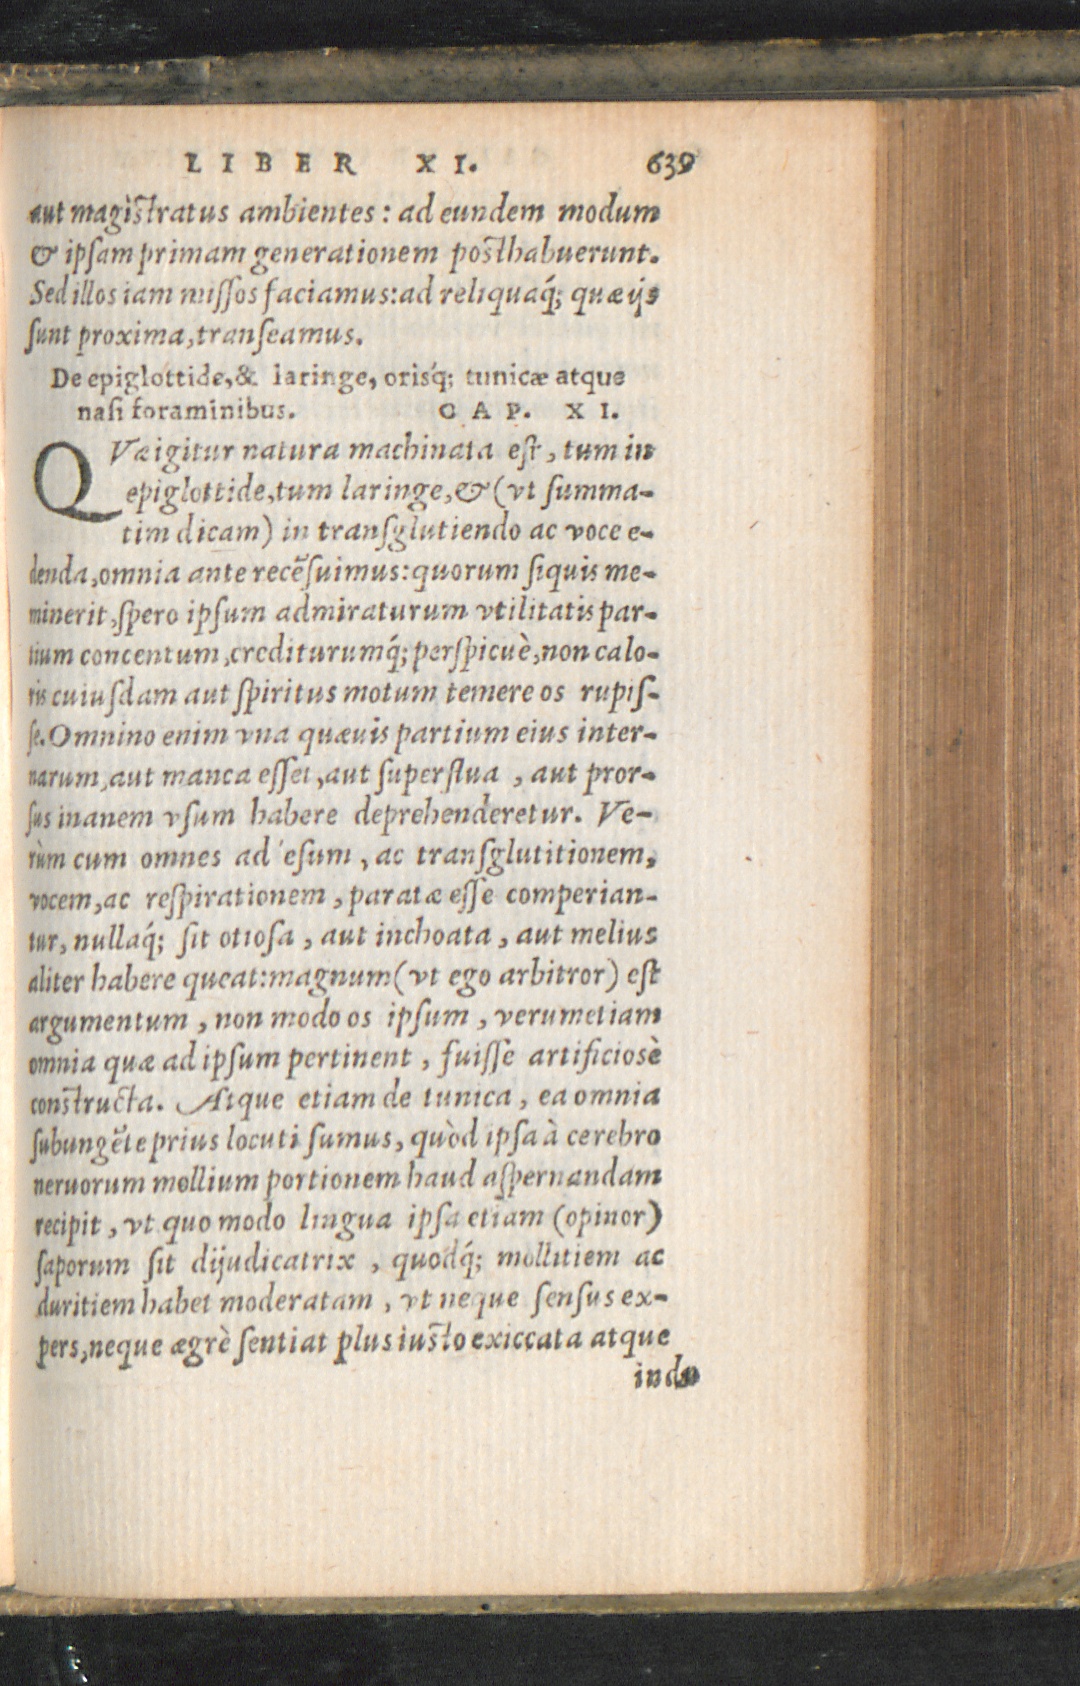 LIBER XI. 639
aut magistratus ambientes: ad eundem modum
& ipsam primam generationem posthabuerunt.
Sed illos iam missos faciamus: ad reliquaq́; quæ ijs
sunt proxima, transeamus.
De epiglottide, & laringe, orisq́; tunicæ atque
nasi foraminibus. CAP. XI.
QVæ igitur natura machinata est, tum in
epiglottide, tum laringe, & (vt summa-
tim dicam) in transglutiendo ac voce e-
denda, omnia ante recẽsuimus: quorum siquis me-
minerit, spero ipsum admiraturum vtilitatis par-
tium concentum, crediturumq́; perspicuè, non calo-
ris cuiusdam aut spiritus motum temere os rupis-
se. Omnino enim vna quæuis partium eius inter-
narum, aut manca esset, aut superflua, aut pror-
sus inanem vsum habere deprehenderetur. Ve-
rùm cum omnes ad esum, ac transglutitionem,
vocem, ac respirationem, paratæ esse comperian-
tur, nullaq́; sit otiosa, aut inchoata, aut melius
aliter habere queat: magnum (vt ego arbitror) est
argumentum, non modo os ipsum, verumetiam
omnia quæ ad ipsum pertinent, fuisse artificiosè
constructa. Atque etiam de tunica, ea omnia
subungẽte prius locuti sumus, quòd ipsa à cerebro
neruorum mollium portionem haud aspernandam
recipit, vt quo modo lingua ipsa etiam (opinor)
saporum sit dijudicatrix, quodq́; mollitiem ac
duritiem habet moderatam, vt neque sensus ex-
pers, neque ægrè sentiat plus iusto exiccata atque
indu